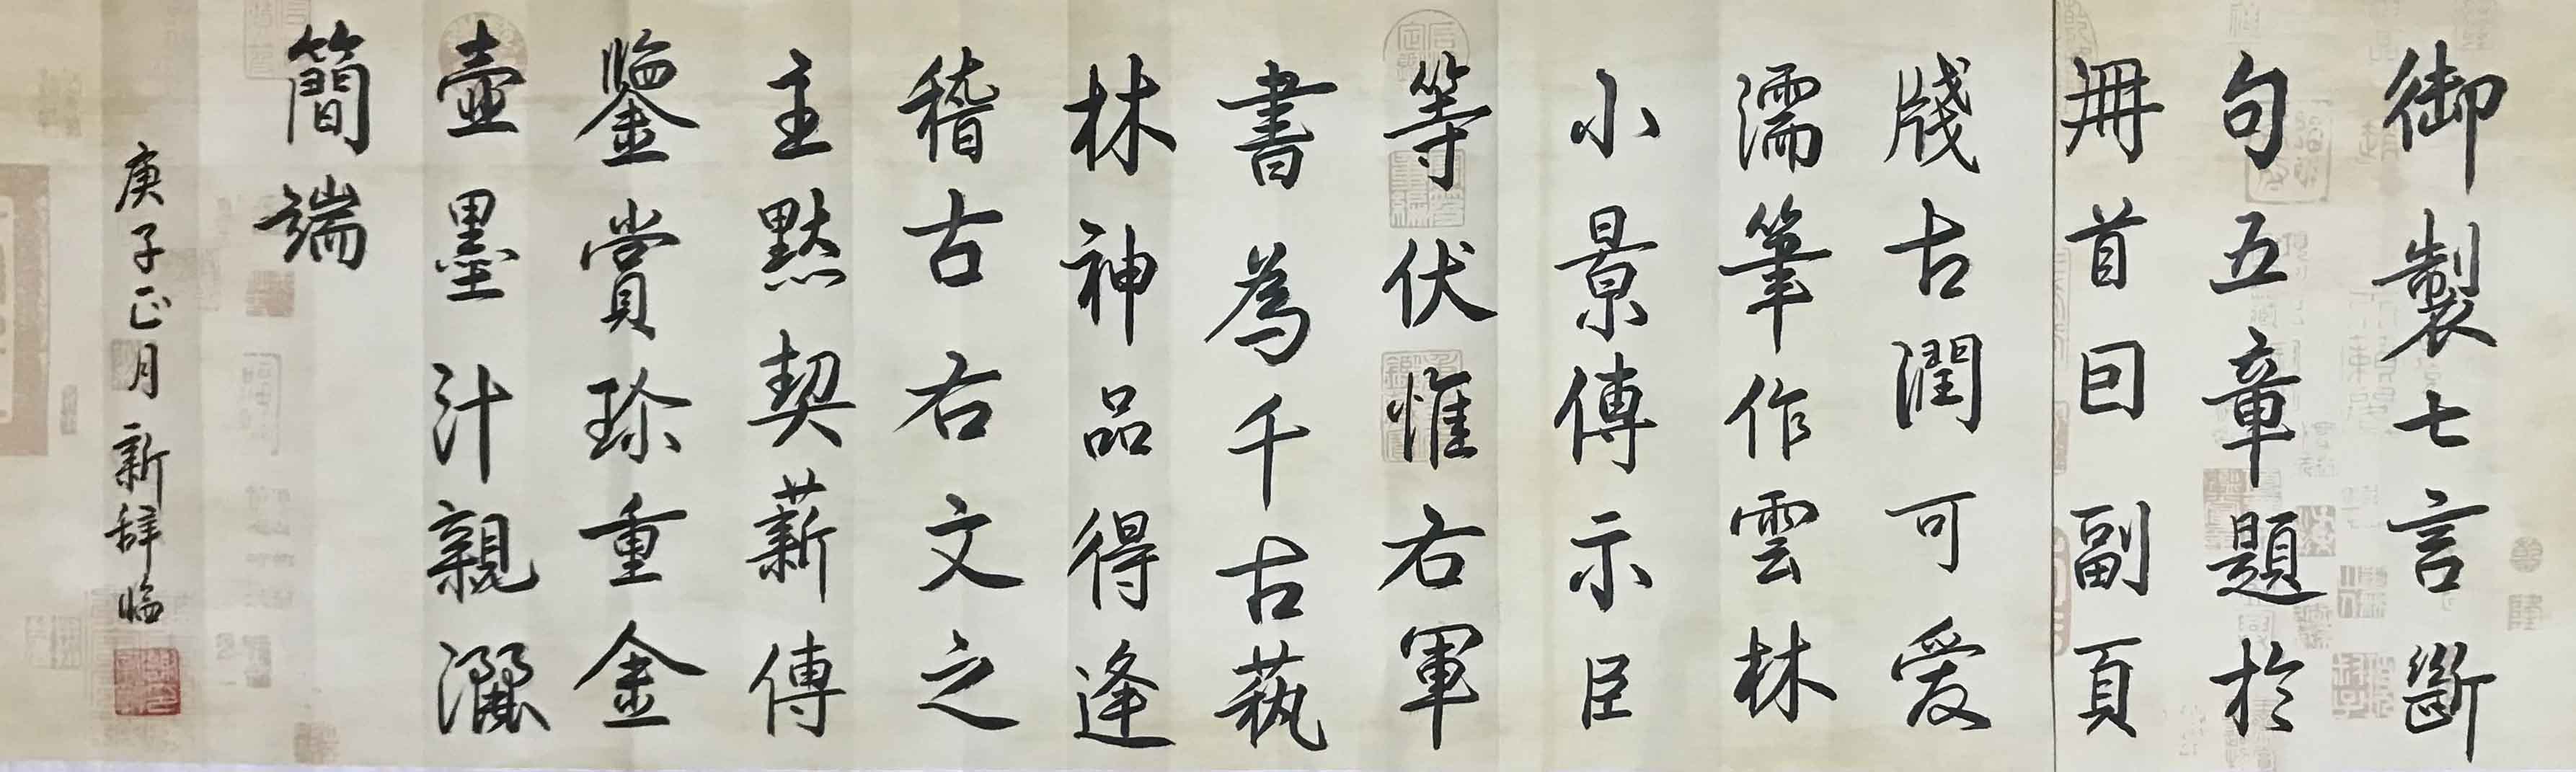 御製七言斷
句五章題於
冊首曰副頁
牋古潤可愛
濡筆作雲林
小景傳示臣
等伏惟右軍
書為千古蓺
林神品得逢
稽古右文之
主默契薪傳
鑒賞珍重金
壺墨汁親灑
簡端
庚子正月新舜臨